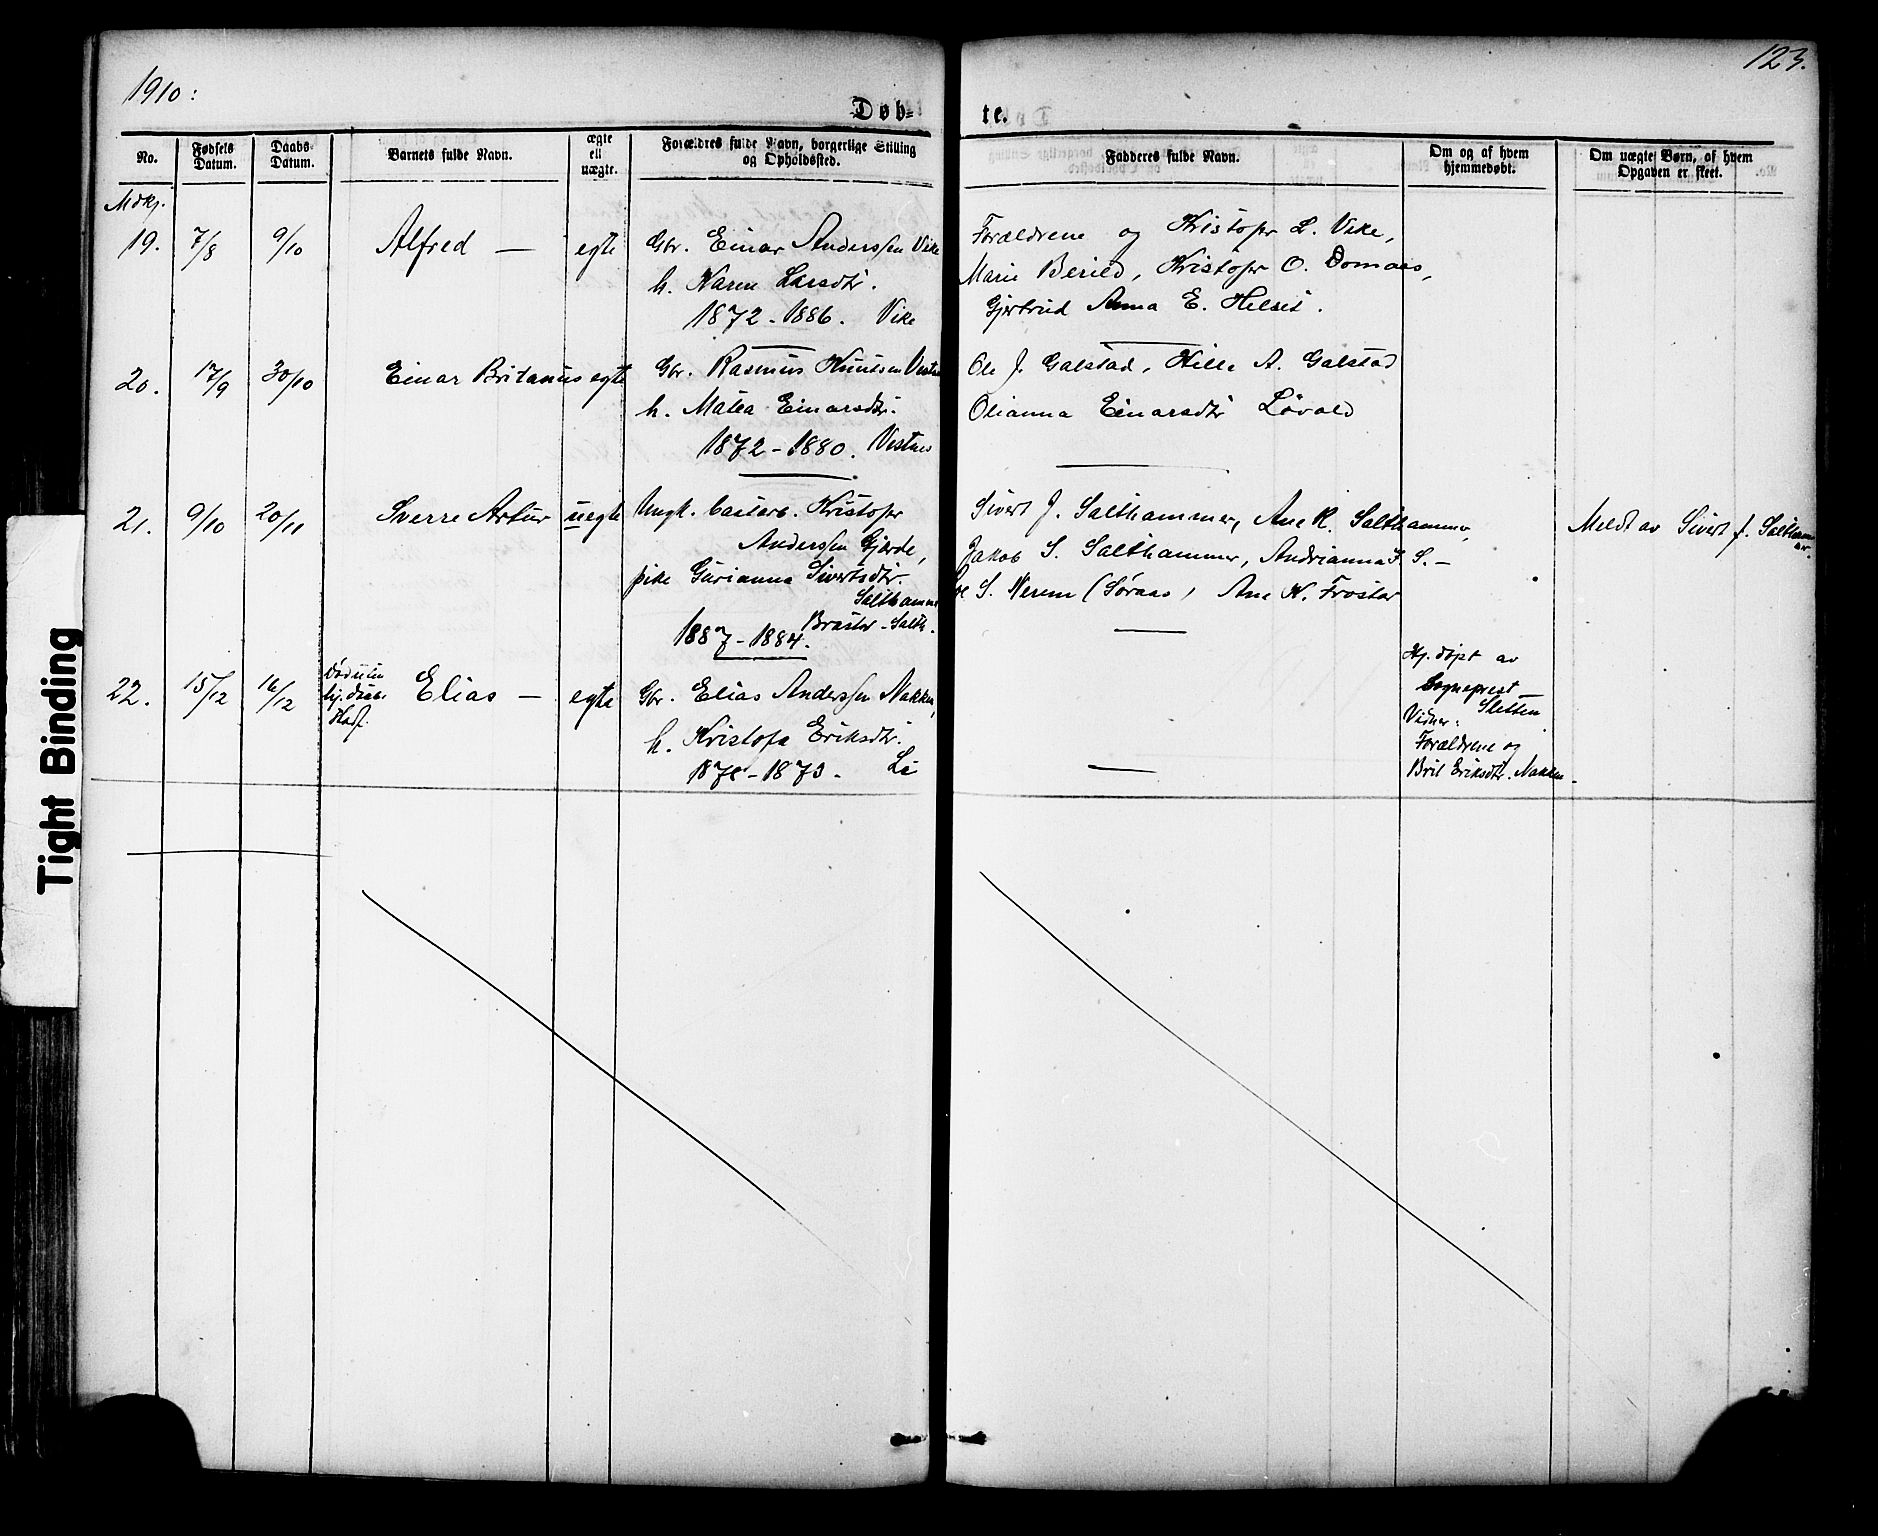 1910:
123.
Døb=
te.
No.
Fødsels Datum.
Daabs Datum.
Barnets fulde Navn.
ægte ell uægte.
Forældres fulde Navn, borgerlige Stilling og Opholdssted.
Fadderes fulde Navn.
Om og af hvem hjemmedøbt.
Om uægte Børn, af hvem Opgaven er skeet.
Mdkj.
19. 7/8 9/10 Alfred — egte Gbr. Einar Anderssen Vike
h. Karen Larsdtr.
1872 - 1886. Vike
Forældrene og Kristofer L. Vike,
Marie Berild, Kristofer O. Domaas,
Gjertrud Anna E. Helset.
20. 17/9 30/10 Einar Britanus egte Gbr. Rasmus Knutsen Vestnes
h. Matea Einarsdtr.
1872 - 1880. Vestnes
Ole J. Galstad, Hille A. Galstad
Olianna Einarsdtr Løvold
21. 9/10 20/11 Sverre Artur uegte Ungk. Kristofer
Anderssen Gjerde,
pike Gurianna Sivertsdtr.
Salthammer
Brastad - Salth.
1887 - 1884.
Sivert J. Salthammer, Ane K. Salthammer,
Jakob S. Salthammer, Andrianna S. —
S. Nerem (Søraas) Ane K. Frostad
Meldt av Sivert J. Salthammer.
22. 15/12 16/12 Elias — egte Gbr. Elias Anderssen Nakken,
h. Kristofa Eriksdtr.
1878 - 1873. Li
Hj. døpt av
Sogneprest
Sletten
Vidner:
Forældrene og
Brit Eriksdtr. Nakken.
Tight Binding